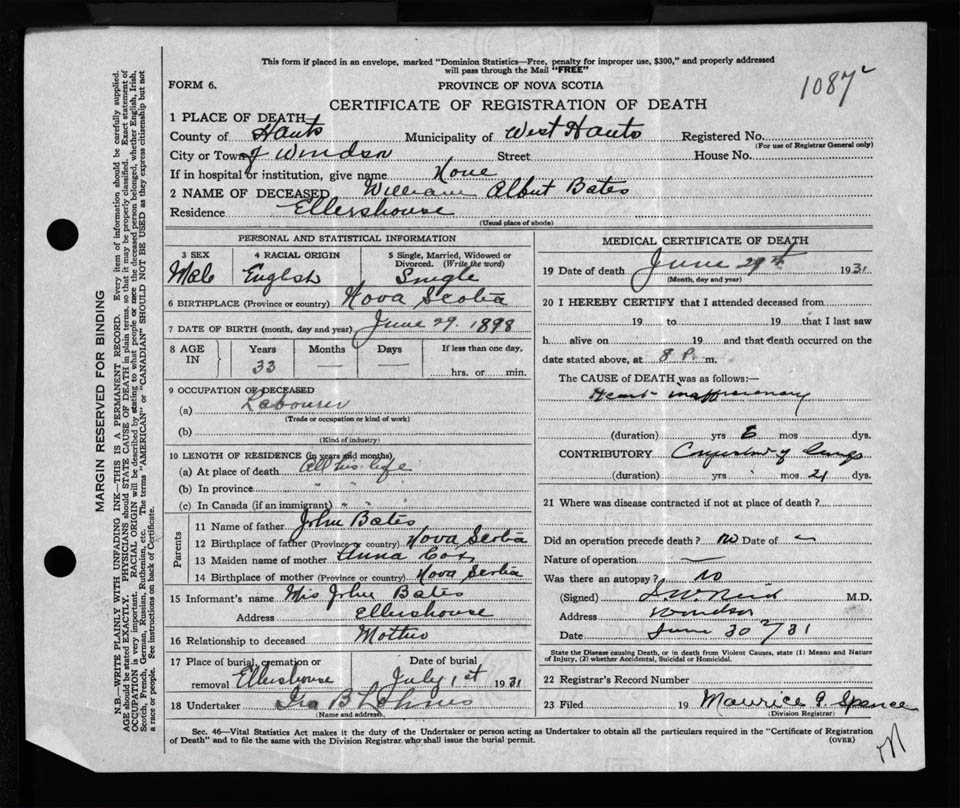 This form if placed in an envelope, marked "Dominion Statistics—Free, penalty for improper use, $300," and properly addressed
will pass through the Mail "FREE"
1087
FORM 6.
PROVINCE OF NOVA SCOTIA
CERTIFICATE OF REGISTRATION OF DEATH
1 PLACE OF DEATH
County of Hants Municipality of West Hants Registered No.
(For use of Registrar General only)
City or Town of Windsor Street House No.
If in hospital or institution, give name None
2 NAME OF DECEASED William Albert Bates
Residence Ellershouse
(Usual place of abode)
PERSONAL AND STATISTICAL INFORMATION
3 SEX 4 RACIAL ORIGIN 5 Single, Married, Widowed or
Divorced. (Write the word)
Male English Single
6 BIRTHPLACE (Province or country) Nova Scotia
7 DATE OF BIRTH (month, day and year) June 29. 1898
8 AGE IN Years Months Days If less than one day,
33 hrs. or min.
9 OCCUPATION OF DECEASED
(a) Labourer
(Trade or occupation or kind of work)
(b)
(Kind of industry)
10 LENGTH OF RESIDENCE (in years and months)
(a) At place of death All his life
(b) In province " " "
(c) In Canada (if an immigrant) " " "
Parents
11 Name of father John Bates
12 Birthplace of father (Province or country) Nova Scotia
13 Maiden name of mother Anna Cox
14 Birthplace of mother (Province or country) Nova Scotia
15 Informant's name Mrs John Bates
Address Ellershouse
16 Relationship to deceased Mother
17 Place of burial, cremation or Date of burial
removal Ellershouse July 1st 1931
18 Undertaker Ira B
(Name and address)
MEDICAL CERTIFICATE OF DEATH
19 Date of death June 29th 1931
(Month, day and year)
20 I HEREBY CERTIFY that I attended deceased from
19 to 19 that I last saw
h alive on 19 and that death occurred on the
date stated above, at 8 P. m.
The CAUSE of DEATH was as follows:—
Heart
(duration) yrs mos dys.
CONTRIBUTORY Congestion of lungs
(duration) yrs mos 21 dys.
21 Where was disease contracted if not at place of death?
Did an operation precede death? no Date of —
Nature of operation —
Was there an autopsy? no
(Signed) M.D.
Address Windsor
Date June 30 /31
State the Disease causing Death, or in death from Violent Causes, state (1) Means and Nature
of Injury, (2) whether Accidental, Suicidal or Homicidal.
22 Registrar's Record Number
23 Filed 19 Maurice G. Spence
(Division Registrar)
Sec. 46—Vital Statistics Act makes it the duty of the Undertaker or person acting as Undertaker to obtain all the particulars required in the "Certificate of Registration
of Death" and to file the same with the Division Registrar who shall issue the burial permit. (OVER)
MARGIN RESERVED FOR BINDING
N.B.—WRITE PLAINLY WITH UNFADING INK—THIS IS A PERMANENT RECORD. Every item of information should be carefully supplied.
AGE should be stated EXACTLY. PHYSICIANS should STATE CAUSE OF DEATH in plain terms, so that it may be properly classified. Exact statement of
OCCUPATION is very important. RACIAL ORIGIN will be described by stating to what people or race the deceased person belonged, whether English, Irish,
Scotch, French, German, Russian, Ruthenian, etc. The terms "AMERICAN" or "CANADIAN" SHOULD NOT BE USED as they express citizenship but not
a race or people. See instructions on back of Certificate.